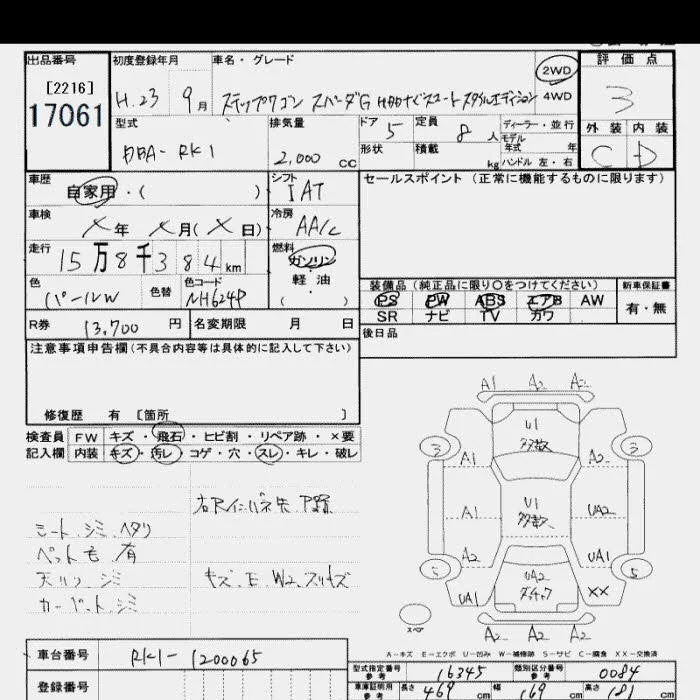 出品番号 初度登録年月 車名・グレード 評価点
[2216]
17061
H.23 9月 ステップワゴン スパーダG HDDナビスマートスタイルエディション 2WD 4WD 3
型式 排気量 ドア 5 定員 8人 ディーラー・並行 外装 内装
DBA-RK1 2,000 CC 形状 積載 kg モデル年式 年 C D
ハンドル 左・右
車歴 シフト セールスポイント (正常に機能するものに限ります)
自家用・( ) IAT
車検 冷房
X年 X月(X日) AA/C
走行 燃料
15万8千384km ガソリン
軽油
( )
色 色替 色コード 装備品 (純正品に限り○をつけてください) 新車保証書
パールW NH624P PS PW ABS エアB AW 有・無
SR ナビ TV カワ
R券 13,700円 名変期限 月 日 後日品
注意事項申告欄 (不具合内容等は具体的に記入して下さい)
修復歴 有 [箇所 ]
検査員 FW キズ・飛石・ヒビ割・リペア跡・×要
記入欄 内装 キズ・汚レ・コゲ・穴・スレ・キレ・破レ
シート シミ ヘタリ
ペット毛 有
天リフ シミ
カーペット シミ
キズ.E.W2.スリキズ
A1 A2 A2
3 U1 多数 3
A1 A2
A1 U1 多数 UA2
A2 UA1
5 UA2 5
UA1 XX
スペア
A2 A2 A2
A-キズ E-エクボ U-凹み W-補修跡 S-サビ C-腐食 XX-交換済
車台番号 RK1-1200065
型式指定番号 参考 16345 類別区分番号 参考 0084
登録番号
車庫証明用 参考 長さ 469cm 幅 169cm 高さ 181cm